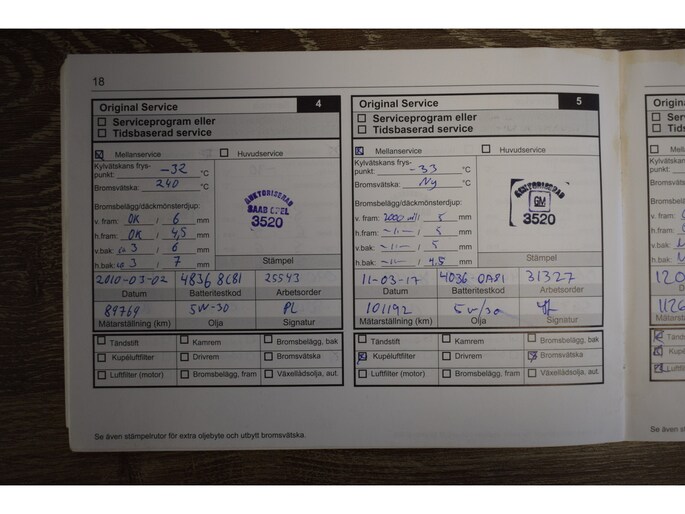 18
Original Service 4
Serviceprogram eller
Tidsbaserad service
Mellanservice Huvudservice
Kylvätskans frys-
punkt: -32 °C
Bromsvätska: 240 °C
Bromsbelägg/däckmönsterdjup:
v. fram: OK / 6 mm
h.fram: OK / 4,5 mm
v.bak: ca 3 / 6 mm
h.bak: ca 3 / 7 mm
AUKTORISERAD
SAAB OPEL
3520
Stämpel
2010-03-02 4836 8C81 25543
Datum Batteritestkod Arbetsorder
89769 5W-30 PL
Mätarställning (km) Olja Signatur
Tändstift Kamrem Bromsbelägg, bak
Kupéluftfilter Drivrem Bromsvätska
Luftfilter (motor) Bromsbelägg, fram Växellådsolja, aut.
Original Service 5
Serviceprogram eller
Tidsbaserad service
Mellanservice Huvudservice
Kylvätskans frys-
punkt: -33 °C
Bromsvätska: Ny °C
Bromsbelägg/däckmönsterdjup:
v. fram: 2000 mil / 5 mm
h.fram: -11- / 5 mm
v.bak: -11- / 5 mm
h.bak: -11- / 4,5 mm
AUKTORISERAD
GM
3520
Stämpel
11-03-17 4036 0A81 31327
Datum Batteritestkod Arbetsorder
101192 5w/30
Mätarställning (km) Olja Signatur
Tändstift Kamrem Bromsbelägg, bak
Kupéluftfilter Drivrem Bromsvätska
Luftfilter (motor) Bromsbelägg, fram Växellådsolja, aut.
Se även stämpelrutor för extra oljebyte och utbytt bromsvätska.